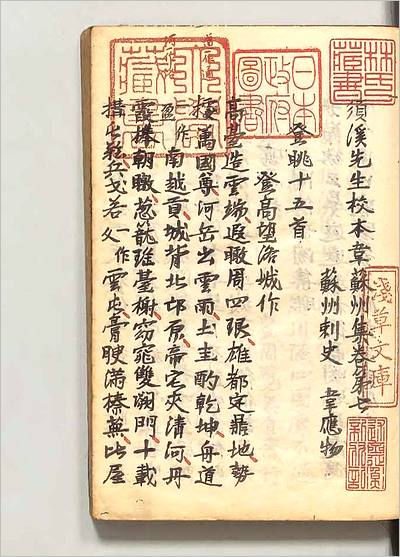 須溪先生校本韋蘇州集卷第七
蘇州刺史 韋應物
登眺十五首
登高望洛城作
高臺造雲端遐瞰周四垠雄都定鼎地勢
據萬國尊河岳出雲雨土圭酌乾坤舟道
一作 南越貢城背北邙原帝宅夾清河丹
霞捧朝暾葱蘢瑤臺榭窈窕雙闕門十載
搆屯兵戈若 一作 雲屯膏腴滿榛蕪比屋
林氏藏書
日本政府圖書
淺草文庫